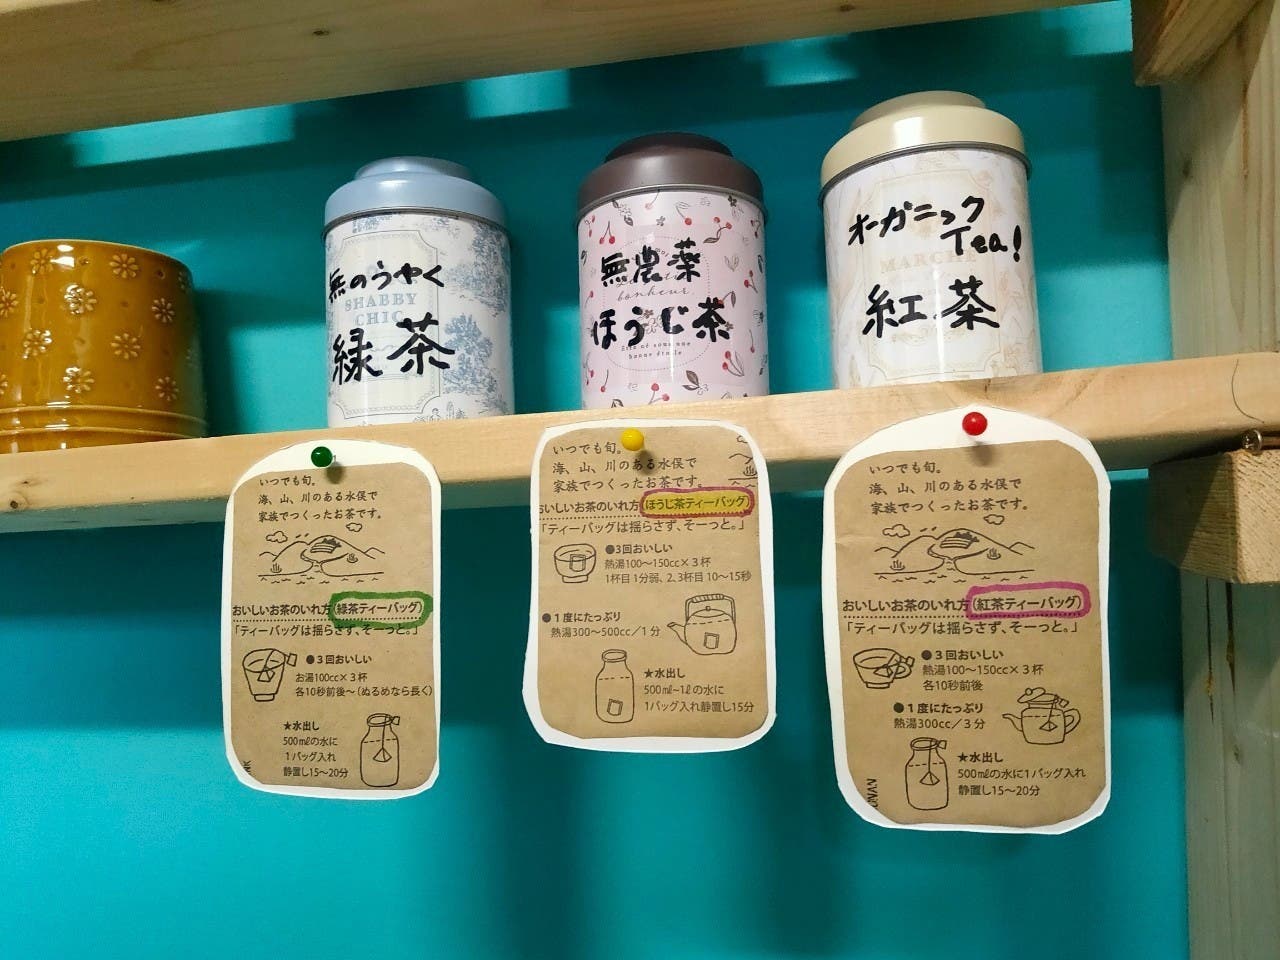 無のうやく
SHABBY
CHIC
緑茶
無農薬
bonheur
ほうじ茶
bonne étoile
オーガニック
Tea!
MARCHE
紅茶
いつでも旬。
海、山、川のある水俣で
家族でつくったお茶です。
おいしいお茶のいれ方(緑茶ティーバッグ)
「ティーバッグは揺らさず、そーっと。」
●3回おいしい
お湯100cc×3杯
各10秒前後〜(ぬるめなら長く)
★水出し
500㎖の水に
1バッグ入れ
静置し15〜20分
いつでも旬。
海、山、川のある水俣で
家族でつくったお茶です。
おいしいお茶のいれ方(ほうじ茶ティーバッグ)
「ティーバッグは揺らさず、そーっと。」
●3回おいしい
熱湯100〜150cc×3杯
1杯目1分弱、2、3杯目10〜15秒
●1度にたっぷり
熱湯300〜500cc/1分
★水出し
500㎖〜1ℓの水に
1バッグ入れ静置し15分
いつでも旬。
海、山、川のある水俣で
家族でつくったお茶です。
おいしいお茶のいれ方(紅茶ティーバッグ)
「ティーバッグは揺らさず、そーっと。」
●3回おいしい
熱湯100〜150cc×3杯
各10秒前後
●1度にたっぷり
熱湯300cc/3分
★水出し
500㎖の水に1バッグ入れ
静置し15〜20分